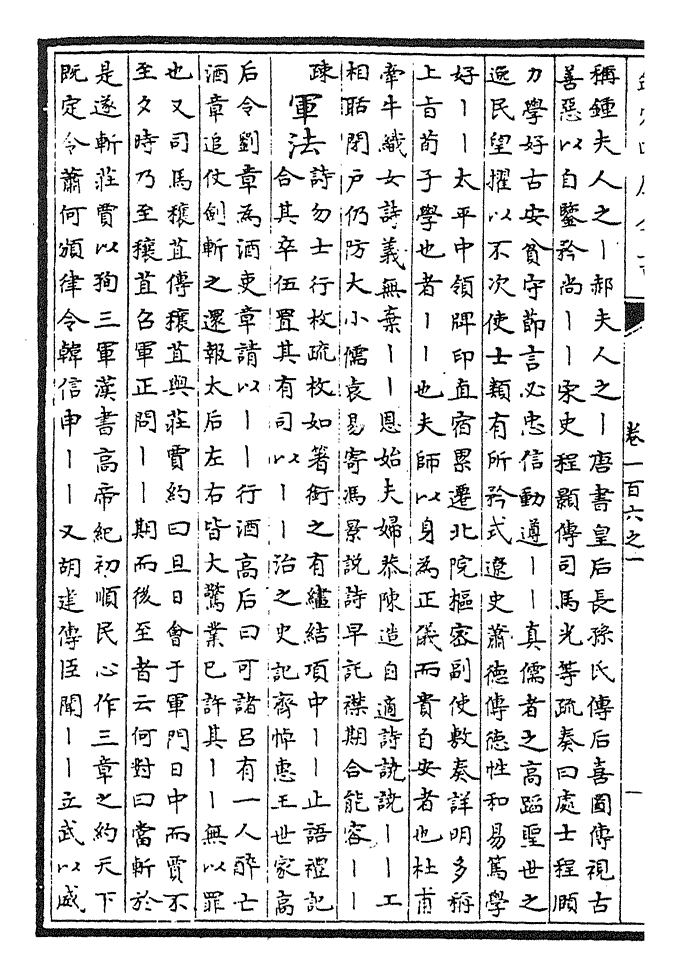 卷一百六之一
一
稱鍾夫人之丨郝夫人之丨唐書皇后長孫氏傳后喜圖傳視古
善惡以自鑒矜尚丨丨宋史程顥傳司馬光等疏奏曰處士程頤
力學好古安貧守節言必忠信動遵丨丨真儒者之高蹈聖世之
逸民望擢以不次使士類有所矜式遼史蕭德傳德性和易篤學
好丨丨太平中領牌印直宿累遷北院樞密副使敷奏詳明多稱
上旨荀子學也者丨丨也夫師以身為正儀而貴自安者也杜甫
牽牛織女詩義無棄丨丨恩始夫婦恭陳造自適詩説説丨丨工
相聒閉戶仍防大小儒袁易寄馮景説詩早託襟期合能容丨丨
疎
軍法
詩勿士行枚疏枚如箸銜之有繣結項中丨丨止語禮記
合其卒伍置其有司以丨丨治之史記齊悼惠王世家高
后令劉章為酒吏章請以丨丨行酒高后曰可諸呂有一人醉亡
酒章追仗劍斬之還報太后左右皆大驚業已許其丨丨無以罪
也又司馬穰苴傳穰苴與莊賈約曰旦日會于軍門日中而賈不
至夕時乃至穰苴召軍正問丨丨期而後至者云何對曰當斬於
是遂斬莊賈以狥三軍漢書高帝紀初順民心作三章之約天下
既定令蕭何頒律令韓信申丨丨又胡建傳臣聞丨丨立武以威